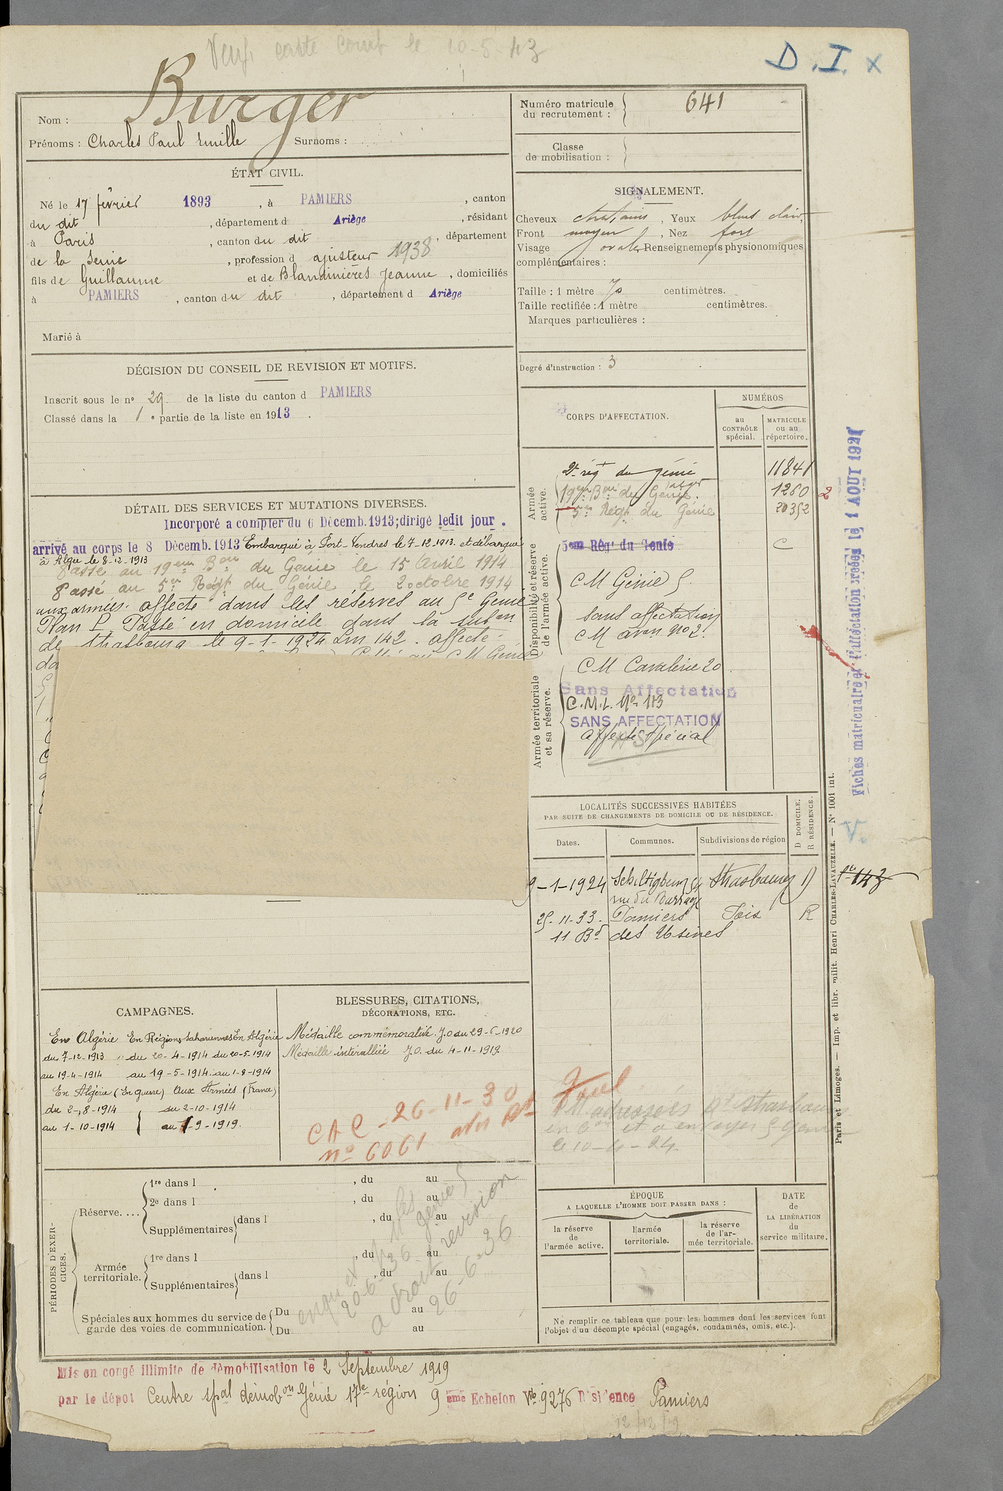 Verif carte Corresp le 10-5-43
D.I. x
Nom : Burger
Prénoms : Charles Paul Emille Surnoms :
Numéro matricule du recrutement : 641
Classe de mobilisation :
ÉTAT CIVIL.
Né le 17 février 1893, à PAMIERS, canton
du dit, département d Ariège, résidant
à Paris, canton du dit, département
de la Seine, profession d ajusteur 1938
fils de Guillaume et de Blandinières Jeanne, domiciliés
à PAMIERS, canton du dit, département d Ariège
Marié à
SIGNALEMENT.
Cheveux chatains, Yeux bleus clairs
Front moyen, Nez fort
Visage ovale Renseignements physionomiques
complémentaires :
Taille : 1 mètre 70 centimètres.
Taille rectifiée : 1 mètre centimètres.
Marques particulières :
Degré d'instruction : 3
DÉCISION DU CONSEIL DE REVISION ET MOTIFS.
Inscrit sous le n° 29 de la liste du canton d PAMIERS
Classé dans la 1e partie de la liste en 1913.
CORPS D'AFFECTATION.
NUMÉROS
au CONTRÔLE spécial.
MATRICULE ou au répertoire.
Armée active.
2e régt du génie 11841
19em Bon du Génie 1260 2
5em Régt du Génie 20352
Disponibilité et réserve de l'armée active.
5eme Rég' du Genie C
CM Génie 5
sans affectation
CM avon No 2
Armée territoriale et sa réserve.
CM Cavalerie 20
Sans Affectation
C.M.I. No 113
SANS AFFECTATION
affecté spécial
DÉTAIL DES SERVICES ET MUTATIONS DIVERSES.
Incorporé a compter du 6 Décemb. 1913; dirigé ledit jour.
arrivé au corps le 8 Décemb. 1913 Embarqué à Port-Vendres le 7-12-1913. et débarqué
à Alger le 8-12-1913
Passé au 19em Bon du Génie le 15 Avril 1914
Passé au 5em Régt du Génie le 2 octobre 1914
aux armées. affecté dans les réserves au 5e Génie
Plan P Passé en domicile dans la subon
de Strasbourg le 9-1-1924 affecté
Fiches matriculaire et d'affectation créées le 1 AOUT 1921
V.
LOCALITÉS SUCCESSIVES HABITÉES
PAR SUITE DE CHANGEMENTS DE DOMICILE OU DE RÉSIDENCE.
Dates. Communes. Subdivisions de région D DOMICILE. R RÉSIDENCE.
9-1-1924 Schiltigheim Strasbourg D
25-11-33 Pamiers Foix R
11 Bd des Usines
Paris et Limoges. — Imp. et libr. milit. Henri CHARLES-LAVAUZELLE. — N° 1001 int.
CAMPAGNES.
En Algérie En Régions Sahariennes En Algérie
du 7-12-1913 du 20-4-1914 du 20-5-1914
au 19-4-1914 au 19-5-1914 au 1-8-1914
En Algérie (En guerre) Aux Armées (France)
du 2-8-1914 du 2-10-1914
au 1-10-1914 au 1-9-1919
BLESSURES, CITATIONS,
DÉCORATIONS, ETC.
Médaille commémorative J.O du 29-6-1920
Médaille interalliée J.O. du 4-11-1919
CAC - 26-11-30
n° 6061
le 10-4-24
PÉRIODES D'EXERCICES.
Réserve....
1re dans l , du au
2e dans l , du au
Supplémentaires dans l , du au
Armée territoriale.
1re dans l , du au
Supplémentaires dans l , du au
Spéciales aux hommes du service de garde des voies de communication.
Du au
Du au
20-6-36
a droit revision
26-6-36
ÉPOQUE
A LAQUELLE L'HOMME DOIT PASSER DANS :
la réserve de l'armée active.
l'armée territoriale.
la réserve de l'armée territoriale.
DATE DE LA LIBÉRATION du service militaire.
Ne remplir ce tableau que pour les hommes dont les services font
l'objet d'un décompte spécial (engagés, condamnés, omis, etc.).
Mis en congé illimité de démobilisation le 2 Septembre 1919
par le dépôt Centre spal démobon Génie 17e région 9 eme Echelon No 9276 Résidence Pamiers